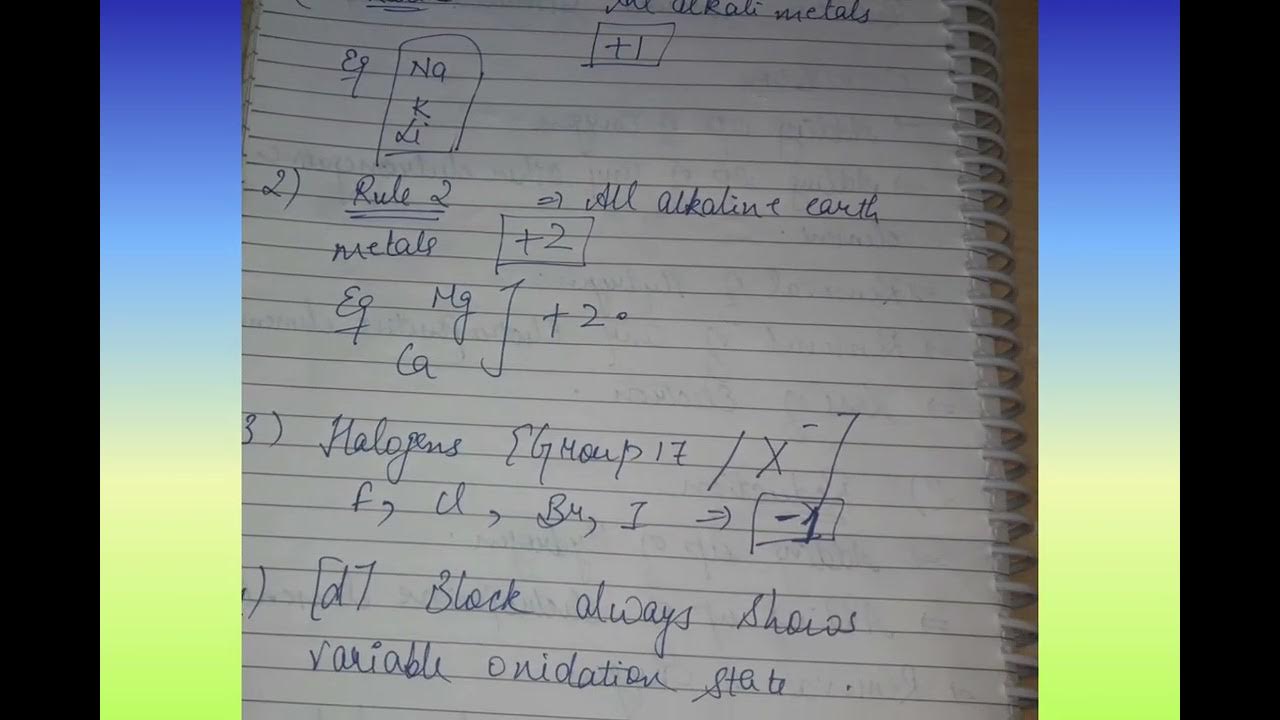 All alkali metals
Eg Na +1
K
Li
2) Rule 2 ⇒ All alkaline earth
metals +2
Eg Mg ] +2.
Ca
3) Halogens [Group 17 / X⁻]
F, Cl, Br, I ⇒ -1
) [d] Block always shows
variable onidation state.